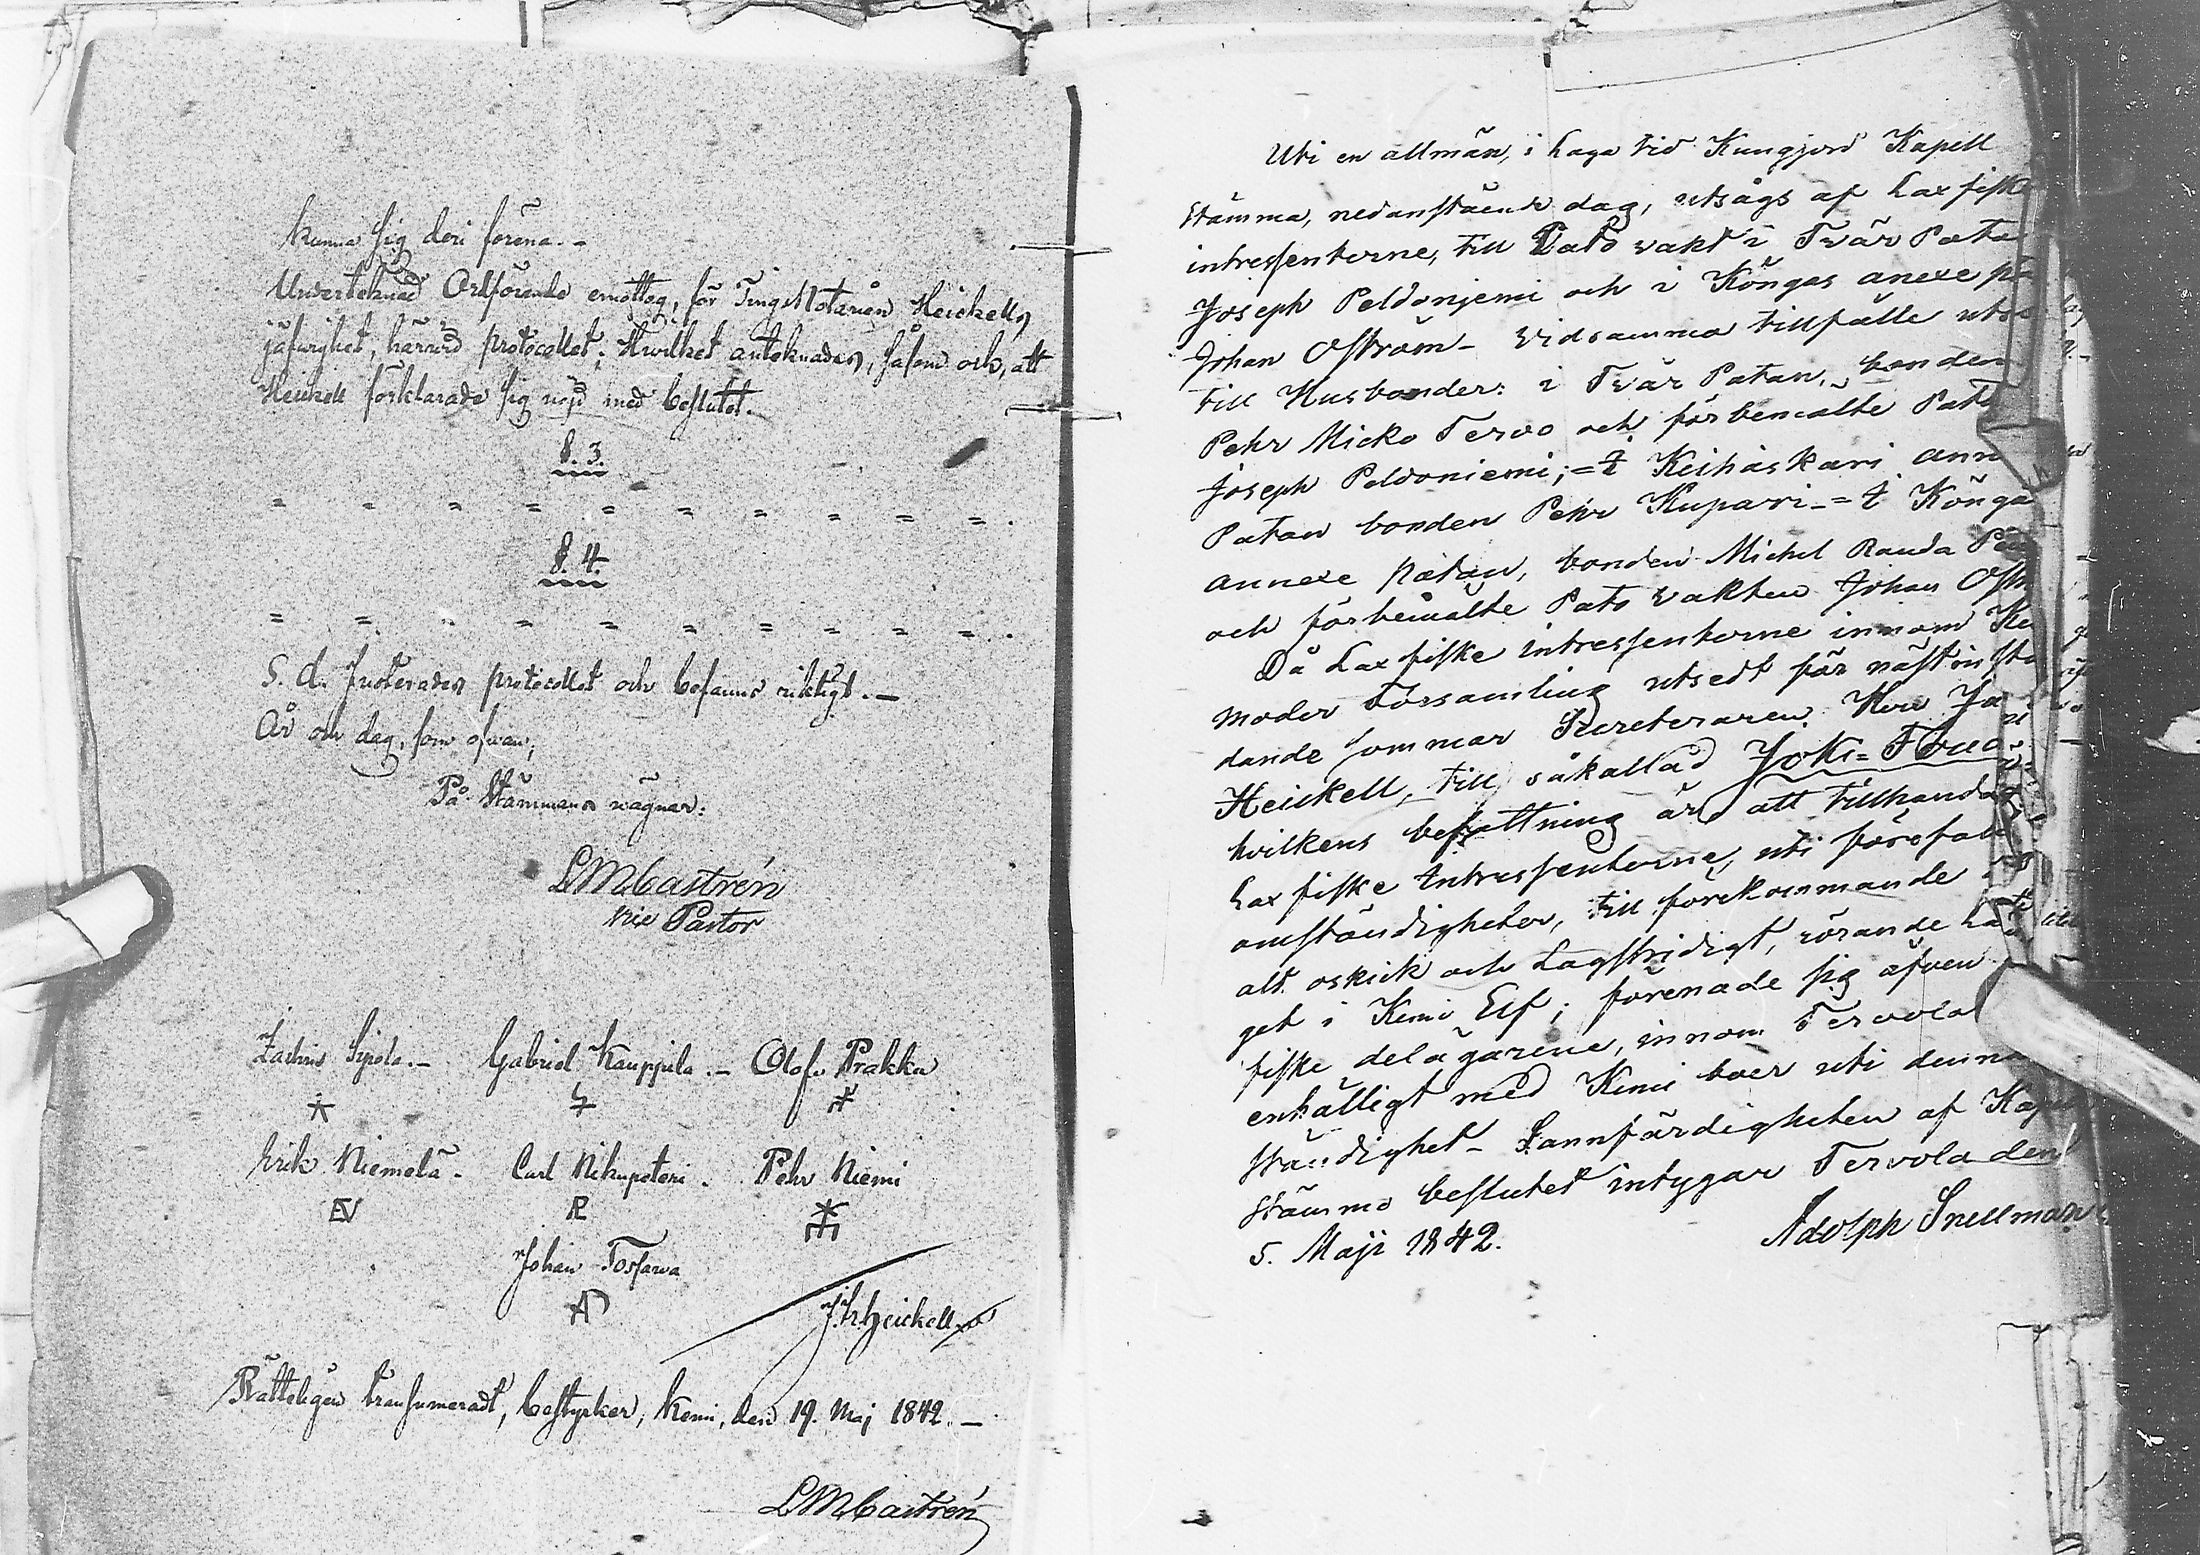 kunna sig deri förena. –
Undertecknad Ordförande emottog, för TingsNotarien Heickells
jäfwighet, härwid protocollet; Hwilket antecknades, såsom och, att
Heickell förklarade sig nöjd med beslutet. –
§. 3.
= = = = = = = = = = .
§. 4.
= = = = = = = = = = .
S. d. Justerades protocollet och befanns riktigt. –
År och dag, som ofwan;
På Stämmans wägnar:
LMCastrén
vice Pastor
Zachris Sipola. – Gabriel Kauppila. – Olof Prakka
Erik Niemelä. Carl Nikupeteri. Pehr Niemi
Johan Tossawa
J. H. Heickell
Rätteligen transumeradt, bestyrker, Kemi, den 19. Maj 1842. –
LMCastrén
Uti en allmän, i laga tid Kungjord Kapell
stämma, nedanstående dag, utsågs af Laxfiske
intressenterne, till Pato vakt i Tvär Pata
Joseph Peldoniemi och i Köngas anexe
Johan Oström – vid samma tillfälle
till Husbonder: i Tvär Patan, bonden
Pehr Micko Tervo och förbemälte
Joseph Peldoniemi; = i Keihäskari
Patan bonden Pehr Kupari – = i Könga
annexe patan, bonden Michel Rauda
och förbemälte Pato vakten Johan
Då Laxfiske intressenterne innom
moder Församling utsedt för
dande sommar Secreteraren Herr
Heickell, till såkallad Joki =
hvilkens befattning är att
Laxfiske Intressenterne, uti
omständigheter, till förekommande
alt oskick och Lagstridigt, rörande
get i Kemi Elf; förenade sig äfven
fiske delägarene, innom Tervola
enhälligt med Kemi boer uti denna
ständighet – Sannfärdigheten af
stämmo beslutet intygar Tervola den
5. Maji 1842. Adolph Snellman